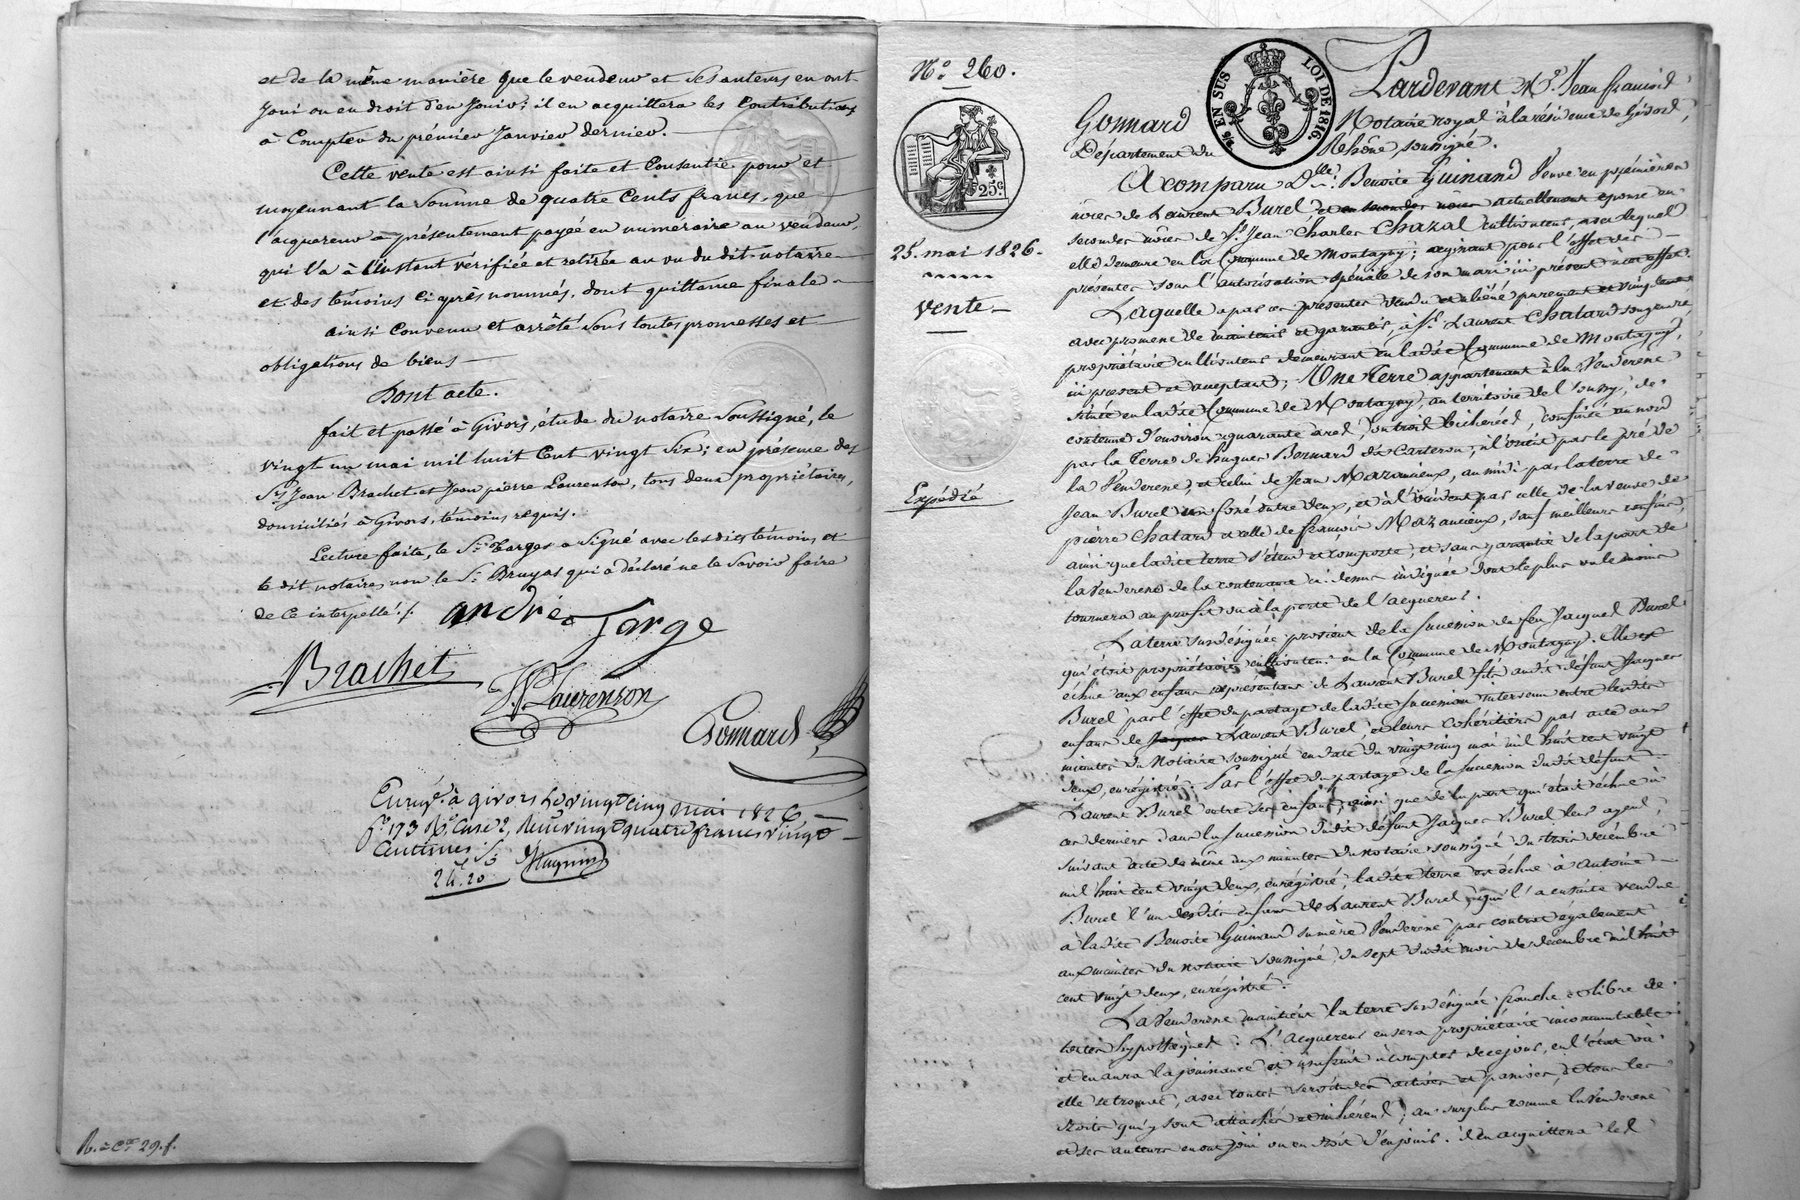 et de la même manière que le vendeur et ses auteurs en ont
joui ou en droit d'en jouir; il en acquittera les contributions
à compter du prémier Janvier dernier.
Cette vente est ainsi faite et consentie pour et
moyennant la somme de quatre cents francs, que
l'acquereur a présentement payée en numéraire au vendeur,
qui l'a à l'instant vérifiée et retirée au vu du dit notaire
et des témoins ci après nommés, dont quittance finale
ainsi convenu et arrêté sous toutes promesses et
obligations de biens
Dont acte.
fait et passé à Givors, étude du notaire soussigné, le
vingt un mai mil huit cent vingt six; en présence des
Srs Jean Brachet et Jean pierre Laurenson, tous deux propriétaires,
domiciliés à Givors, témoins requis.
Lecture faite, le Sr. Targe a signé avec les dits témoins et
le dit notaire, non le Sr. Bruyas qui a déclaré ne le savoir faire
de ce interpellé./.
andré Targe
Brachet
J P Laurenson
Gonnard
Enregé. à givors le vingt cinq mai 1826
fo. 173 Ro. Case 2, Reçu vingt quatre francs vingt
Centimes
24.20
R. à Cre 29. f.
No. 260.
25c
25. mai 1826.
vente
Expédié
EN SUS LOI DE 1816.
Pardevant Me. Jean francois
Gonnard Notaire royal à la résidence de Givors,
Département du Rhône, soussigné.
A comparu Dlle. Benoite Guinand Veuve en premières
nôces de Laurent Burel et en secondes nôces actuellement épouse en
secondes nôces de Sr. Jean Charles Chazal cultivateur, avec lequel
elle demeure en la Commune de Montagny; agissant pour l'effet des
présentes sous l'autorisation spéciale de son mari ici présent à cet effet.
Laquelle a par ces présentes vendu et aliéné purement et
avec promesse de maintenir et garantir, à Sr. Laurent Chatard
propriétaire cultivateur demeurant en ladite Commune de Montagny,
ici présent et acceptant; Une Terre appartenant à la Venderesse
située en ladite Commune de Montagny, au térritoire de
contenue d'environ quarante ares, confinée au nord
par la Terre de hugues Bonnard dit Carteron; à l'orient par le pré de
la Venderesse, et celui de Jean Mazancieux, au midi par la terre de
Jean Burel un fossé entre deux, et à l'occident par celle de la veuve de
pierre Chatard et celle de françois Mazancieux, sauf meilleurs confins,
ainsi que ladite terre s'étend et comporte, et sans garantie de la part de
la Venderesse de la contenance ci-dessus indiquée dont le plus ou le moins
tournera au profit ou à la perte de l'acquereur.
La terre susdésignée provient de la succession de feu Jacques Burel
qui étoit propriétaire cultivateur en la Commune de Montagny. elle est
échue aux enfans représentans de Laurent Burel fils audit défunt Jacques
Burel par l'effet du partage de ladite succession intervenu entre lesdits
enfans de Jacques Laurent Burel, et leurs cohéritiers par acte aux
minutes du Notaire soussigné en date du vingt cinq mai mil huit cent vingt
deux, enrégistré. Par l'effet du partage de la succession dudit défunt
Laurent Burel entre ses enfans, ainsi que de la part qui étoit échue à
ces derniers dans la succession dudit défunt Jacques Burel leur ayeul
suivant acte de même aux minutes du notaire soussigné du trois décembre
mil huit cent vingt deux, enrégistré, ladite terre est échue à Antoine
Burel l'un desdits enfans de Laurent Burel, qui l'a ensuite vendue
à ladite Benoite Guinand sa mère Venderesse par contrat également
aux minutes du notaire soussigné, du sept dudit mois de décembre mil huit
cent vingt deux, enrégistré.
La Venderesse maintient la terre susdésignée franche et libre de
toutes hypothèques. L'acquereur en sera propriétaire incommutable
et en aura la jouissance et usufruit à compter de ce jour, en l'état où
elle se trouve, avec toutes servitudes actives et passives, et tous les
droits qui y sont attachés et inhérens; au surplus comme la Venderesse
et ses auteurs en ont joui ou en droit d'en jouir. il en acquittera les